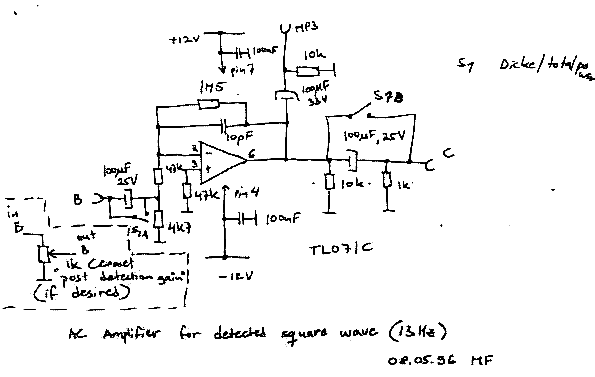 MP3
+12V
100nF
pin 7
10k
S1 Dicke/total po
1M5
100µF
35V
S1B
10pF
100µF, 25V
2
6
3
C
100µF
25V
47k
47k
pin 4
B
10k
1k
S1A
4k7
100nF
in
B
out
B
TL071C
1k Cermet
"post detection gain"
(if desired)
-12V
AC Amplifier for detected square wave (13Hz)
08.05.96 MF